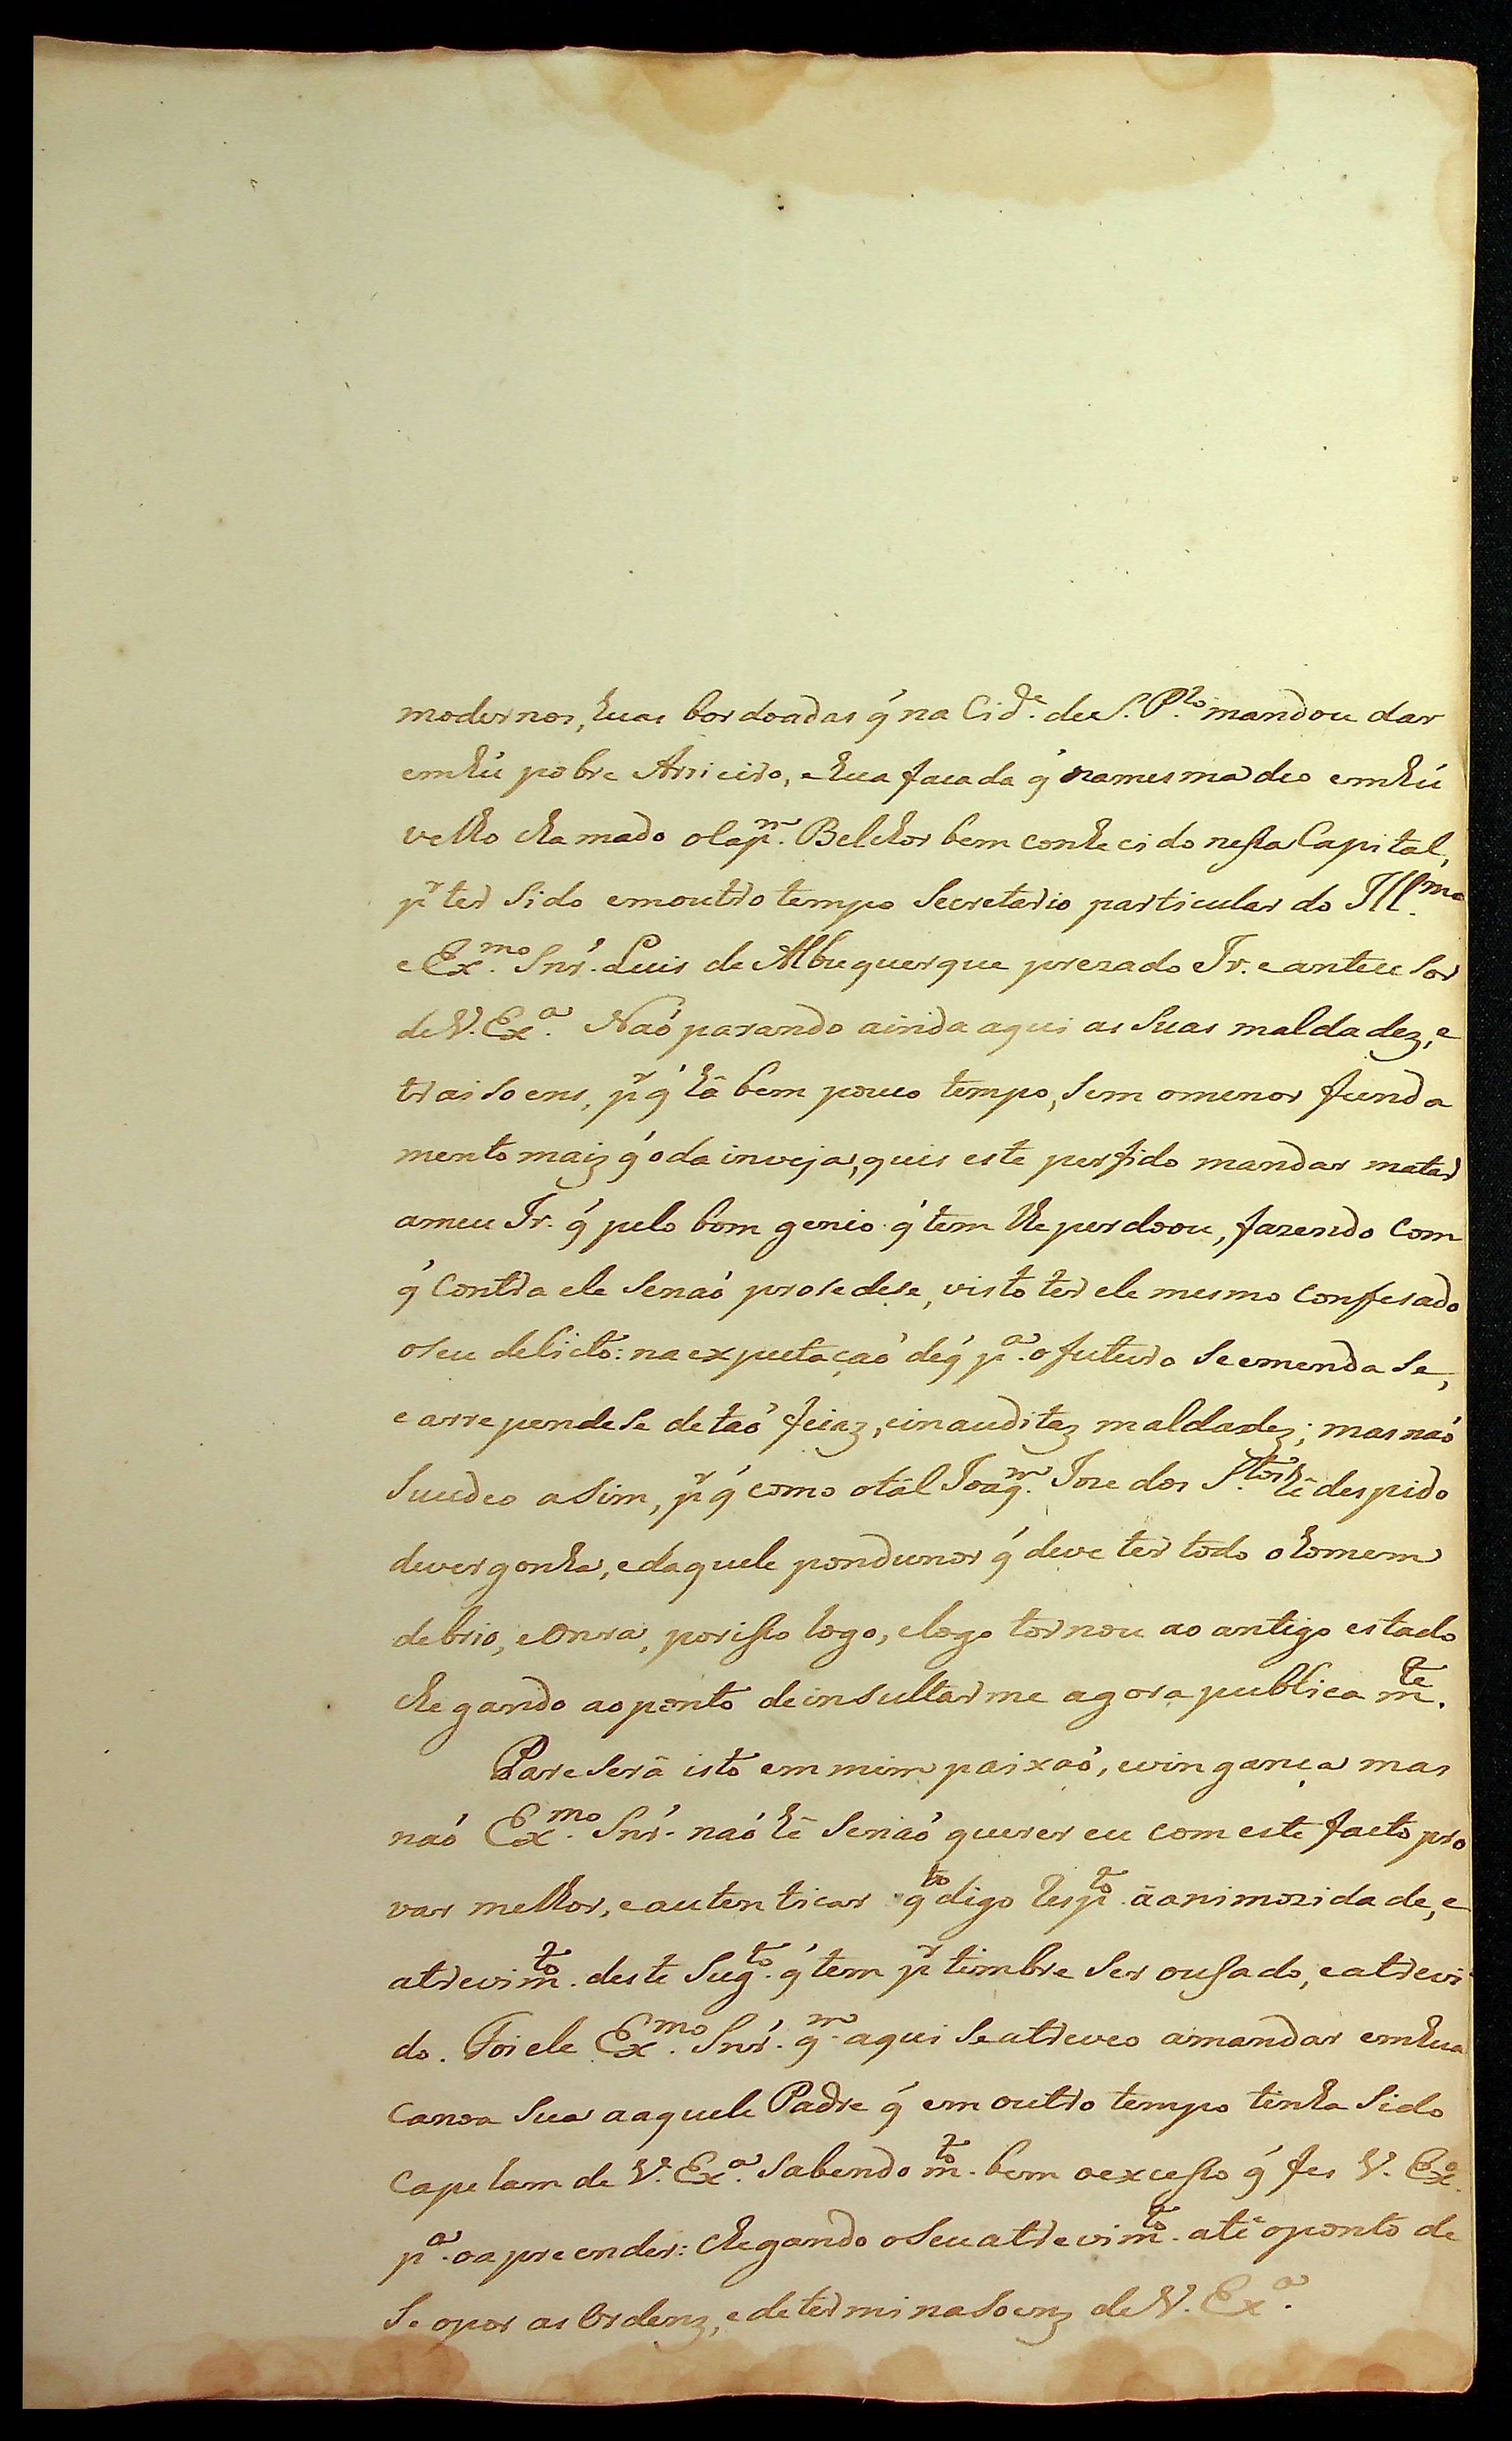 modernos, huas bordoadas q́ na Cid.e de S. P.lo mandou dar
em hú pobre Arrieiro, e hua facada q́ na mesma deo em hú
velho chamado o Cap.m Belchor bem conhecido nesta Capital,
p.r ter sido em outro tempo Secretario particular do Ill.mo
e Ex.mo Snr̃. Luis de Albuquerque prezado Ir. e anteusor
de V. Ex.a Naó parando ainda aqui as suas maldadez, e
traisoens, p.r q́ hâ bem pouco tempo, sem o menor funda
mento maiz q́ o da inveja, quis este perfido mandar matar
a meu Ir. q́ pelo bom genio q́ tem lhe perdoou, fazendo com
q́ contra ele se naó prosedese, visto ter ele mesmo confesado
o seu delicto: na expectaçaó de q́ p.a o futuro se emendase,
e arrependese de taó feiaz, e inauditaz maldadez; mas naó
sucedeo asim, p.r q́ como o tal Joaq.m Joze dos S.tos hê despido
de vergonha, e daquele pondunor q́ deve ter todo o homem
de brio, e Onra, por isso logo, e logo tornou ao antigo estado
chegando ao ponto de insultarme agora publicam.te.
Pareserâ isto em mim paixaó, e vingança mas
naó Ex.mo Snr̃. naó hê senaó querer eu com este facto pro
var melhor, e autenticar q.to digo resp.to â animozidade, e
atrevim.to deste Sug.to q́ tem p.r timbre ser ousado, e atrevi
do. Foi ele Ex.mo Snr̃. q.m aqui se atreveo a mandar em hua
canoa sua a aquele Padre q́ em outro tempo tinha sido
capelam de V. Ex.a sabendo m.to bem o excesso q́ fes V. Ex.a
p.a o apreender: chegando o seu atrevim.to atê o ponto de
se opor as Ordenz, e determinasoenz de V. Ex.a